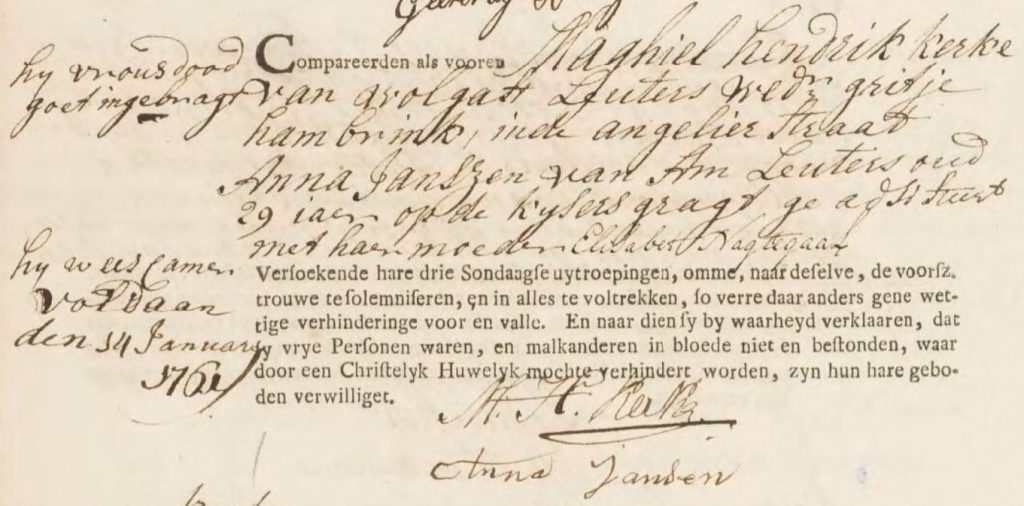 hy vrous dood
goet ingebragt
Compareerden als vooren Maghiel hendrik kerke
van wolgatt Leuters wedr gritje
hambrink, inde angelier straat
Anna Janszen van Am Leuters oud
29 iaer op de kysers gragt ge adsisteert
met haer moeder Elisabet Nagtegaal
hy weescamer
voldaan
den 14 January
1761
Versoekende hare drie Sondaagse uytroepingen, omme, naar deselve, de voorsz.
trouwe te solemniseren, en in alles te voltrekken, so verre daar anders gene wet-
tige verhinderinge voor en valle. En naar dien sy by waarheyd verklaaren, dat
sy vrye Personen waren, en malkanderen in bloede niet en bestonden, waar
door een Christelyk Huwelyk mochte verhindert worden, zyn hun hare gebo-
den verwilliget.
M. H. Kerke
Anna Jansen